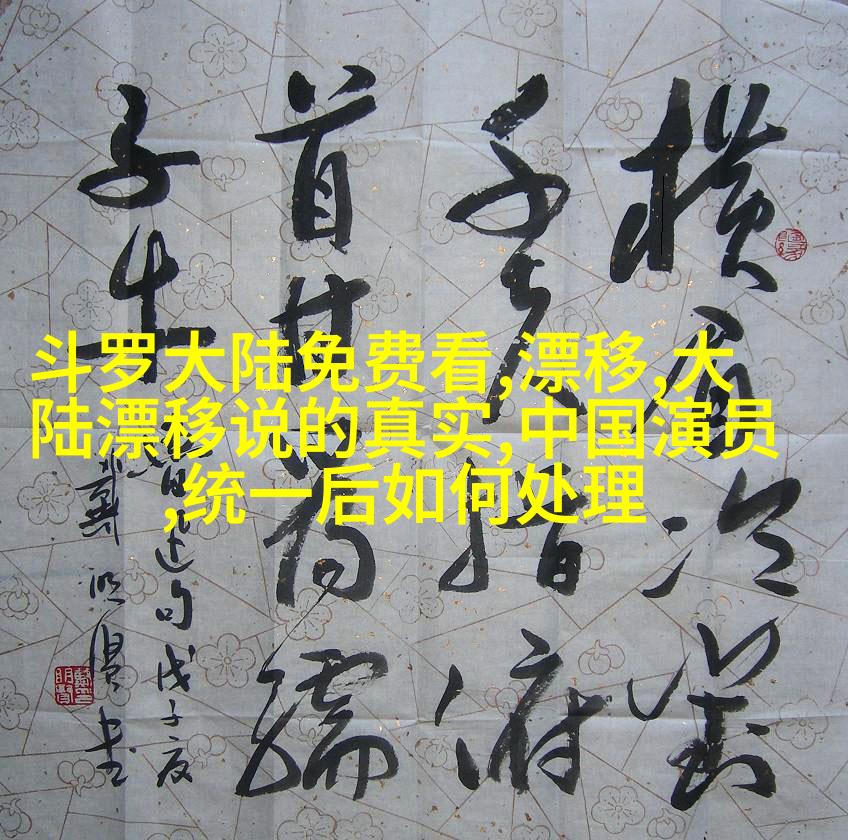 横眉冷对
千夫指俯
首甘为孺
子牛
鲁迅句戊子夏
书
斗罗大陆免费看,漂移,大
陆漂移说的真实,中国演员
,统一后如何处理